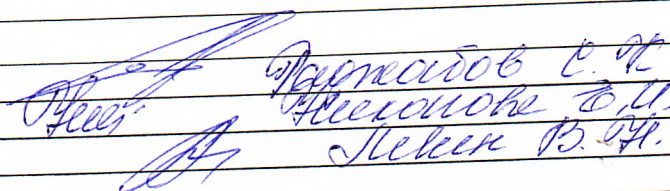 Раджабов С. К
Никонова Е. И
Пекин В. Н.